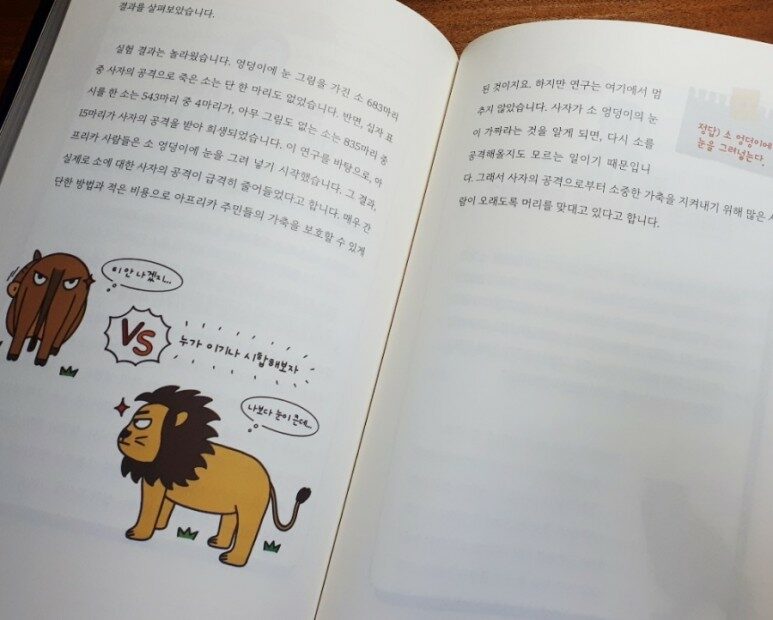 결과를 살펴보았습니다.
실험 결과는 놀라웠습니다. 엉덩이에 눈 그림을 가진 소 683마리
중 사자의 공격으로 죽은 소는 단 한 마리도 없었습니다. 반면, 십자 표
시를 한 소는 543마리 중 4마리가, 아무 그림도 없는 소는 835마리 중
15마리가 사자의 공격을 받아 희생되었습니다. 이 연구를 바탕으로, 아
프리카 사람들은 소 엉덩이에 눈을 그려 넣기 시작했습니다. 그 결과,
실제로 소에 대한 사자의 공격이 급격히 줄어들었다고 합니다. 매우 간
단한 방법과 적은 비용으로 아프리카 주민들의 가축을 보호할 수 있게
이 안 나겠지...
VS
누가 이기나 시합해보자
나보다 눈이 큰데...
된 것이지요. 하지만 연구는 여기에서 멈
추지 않았습니다. 사자가 소 엉덩이의 눈
이 가짜라는 것을 알게 되면, 다시 소를
공격해올지도 모르는 일이기 때문입니
다. 그래서 사자의 공격으로부터 소중한 가축을 지켜내기 위해 많은 사
람이 오래도록 머리를 맞대고 있다고 합니다.
정답) 소 엉덩이에
눈을 그려넣는다.